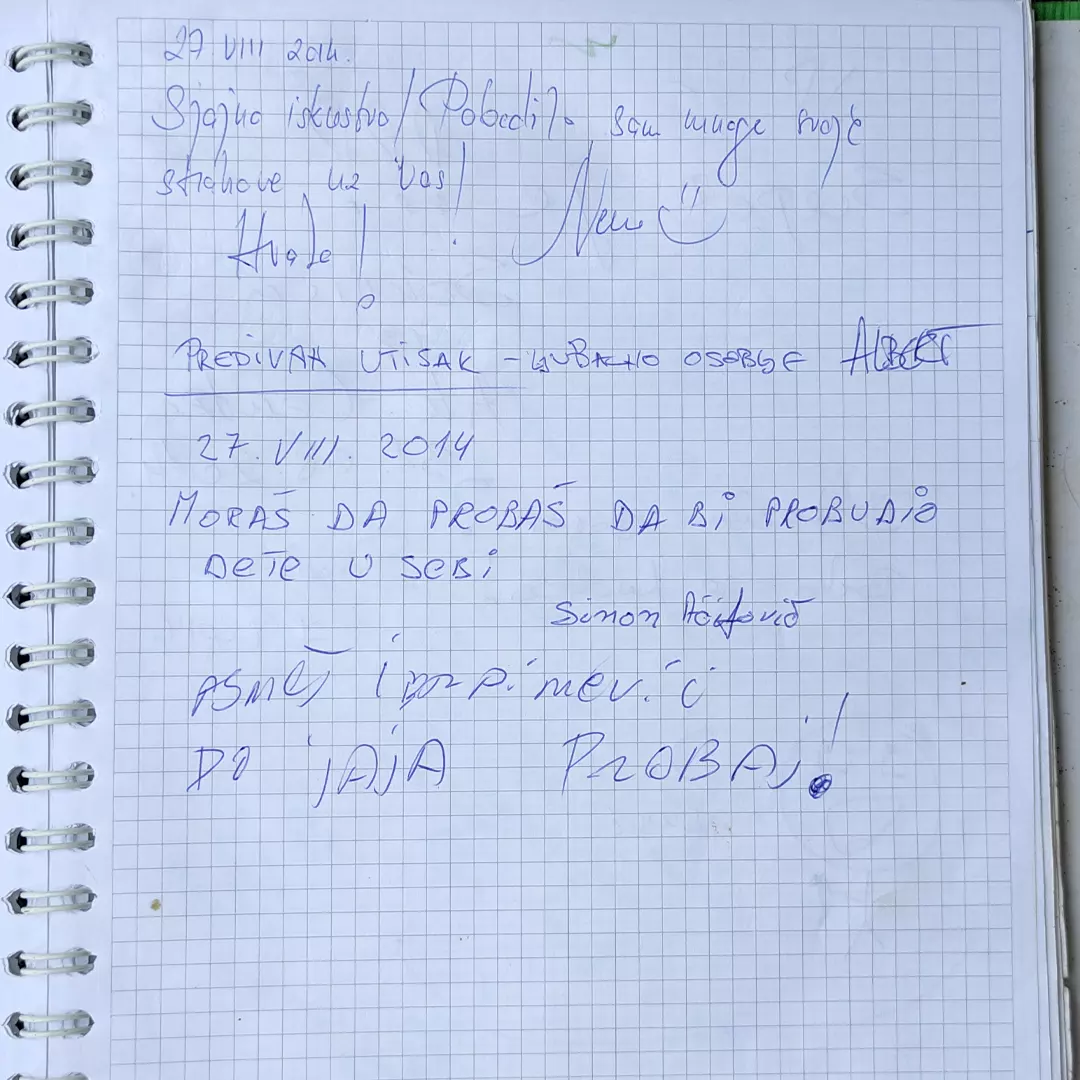 27 VIII 2014.
Sjajno iskustvo! Pobedila sam mnoge svoje
strahove uz vas!
Hvala!
PREDIVAN UTISAK - LJUBAZNO OSOBLJE ALBERT
27. VIII. 2014
MORAŠ DA PROBAŠ DA BI PROBUDIO
DETE U SEBI
Simon
DO JAJA PROBAJ!